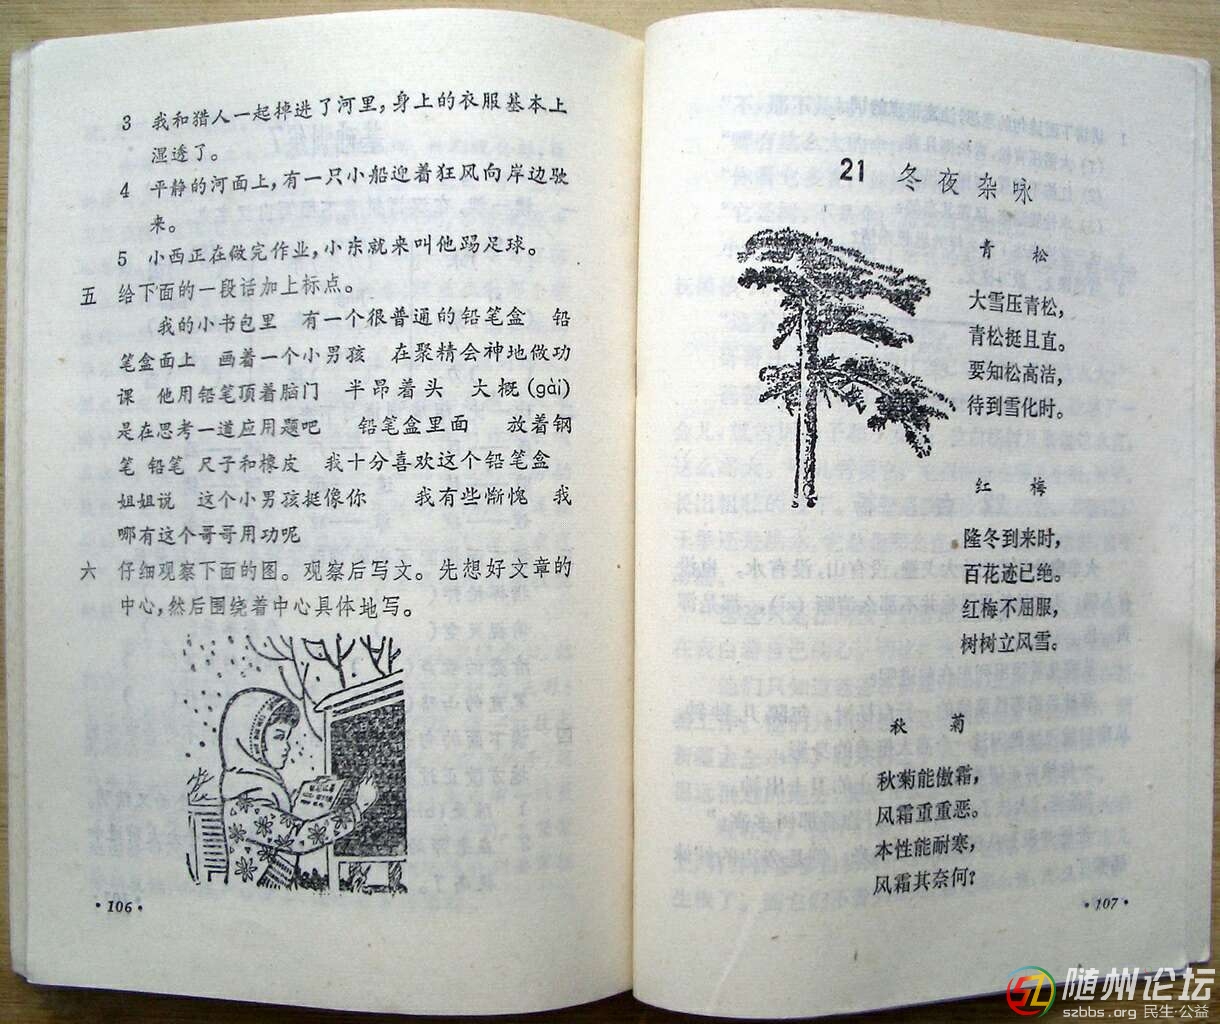 3 我和猎人一起掉进了河里，身上的衣服基本上
湿透了。
4 平静的河面上，有一只小船迎着狂风向岸边驶
来。
5 小西正在做完作业，小东就来叫他踢足球。
五 给下面的一段话加上标点。
我的小书包里 有一个很普通的铅笔盒 铅
笔盒面上 画着一个小男孩 在聚精会神地做功
课 他用铅笔顶着脑门 半昂着头 大概(gài)
是在思考一道应用题吧 铅笔盒里面 放着钢
笔 铅笔 尺子和橡皮 我十分喜欢这个铅笔盒
姐姐说 这个小男孩挺像你 我有些惭愧 我
哪有这个哥哥用功呢
六 仔细观察下面的图。观察后写文。先想好文章的
中心，然后围绕着中心具体地写。
·106·
21 冬夜杂咏
青 松
大雪压青松，
青松挺且直。
要知松高洁，
待到雪化时。
红 梅
隆冬到来时，
百花迹已绝。
红梅不屈服，
树树立风雪。
秋 菊
秋菊能傲霜，
风霜重重恶。
本性能耐寒，
风霜其奈何？
·107·
随州论坛
szbbs.org 民生·公益